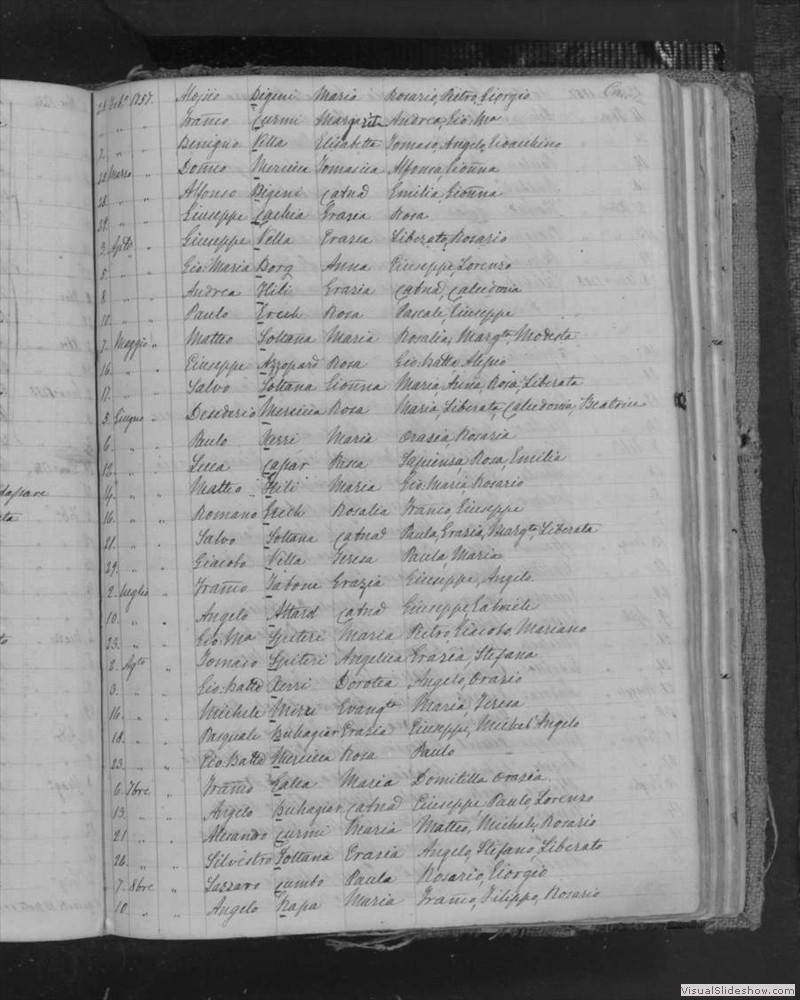 Aloisio Bigeni Maria Rosario, Pietro, Giorgio
" " Franco Curmi Margarita Andrea, Gio: Ma
7. " " Benigno Vella Elisabetta Tomaso, Angelo, Gioacchino
22 Marzo " Mercieca Tomasica Alfonsa,
28. " " Alfonso Bigeni Catnd Emilia,
29. " " Giuseppe Cachia Grazia Rosa
" Giuseppe Vella Grazia Liberato, Rosario
5. " " Gio: Maria Borg Anna Giuseppe, Lorenzo
8. " " Andrea Hili Grazia Catnd, Calcidonia
10. " " Paulo Grech Rosa Pascale, Giuseppe
7. Maggio " Matteo Soltana Maria Rosalia, Margta, Modesta
16. " " Giuseppe Azzopard Rosa Gio: Batta
17. " " Salvo Soltana Maria, Anna, Rosa, Liberata
5. Giugno " Desederio Mercieca Rosa Maria, Liberata, Calcidonia, Beatrice
6. " " Paulo Xerri Maria Orazia Rosaria
12. " " Luca Rosa, Emilia
" " Matteo Hili Maria Gio: Maria Rosario
16. " " Romano Grech Rosalia Franco, Giuseppe
21. " " Salvo Soltana Catnad Paula, Grazia, Margta, Liberata
29. " " Giacobo Vella Teresa Paula, Maria
2. Luglio " Tabone Grazia Giuseppe, Angelo.
10. " " Angelo Attard Catnd Giuseppe Gabriele
23. " " Gio: Ma Spiteri Maria Pietro, Giacobo, Mariano
2. Agto " Tomaso Spiteri Angelica Grazia, Stefana
3. " " Gio: Batta Xerri Dorotea Angelo, Orazio
16. " " Michele Mizzi Evangta Maria, Teresa
18. " " Pasquale Buhagiar Grazia Giuseppe, Michel'Angelo
23. " " Gio: Batta Mercieca Rosa Paulo
6. 7bre " Galea Maria Domitilla Orazia.
13. " " Angelo Buhagiar Catnad Giuseppe Paulo, Lorenzo
21. " " Alesandro Curmi Maria Matteo, Michele, Rosario
26. " " Silvestro Soltana Grazia Angelo, Stefano, Liberato
7. 8bre " Lazzaro Cumbo Paula Rosario, Giorgio
10. " " Angelo Rapa Maria Franco, Filippo, Rosario
VisualSlideshow.com